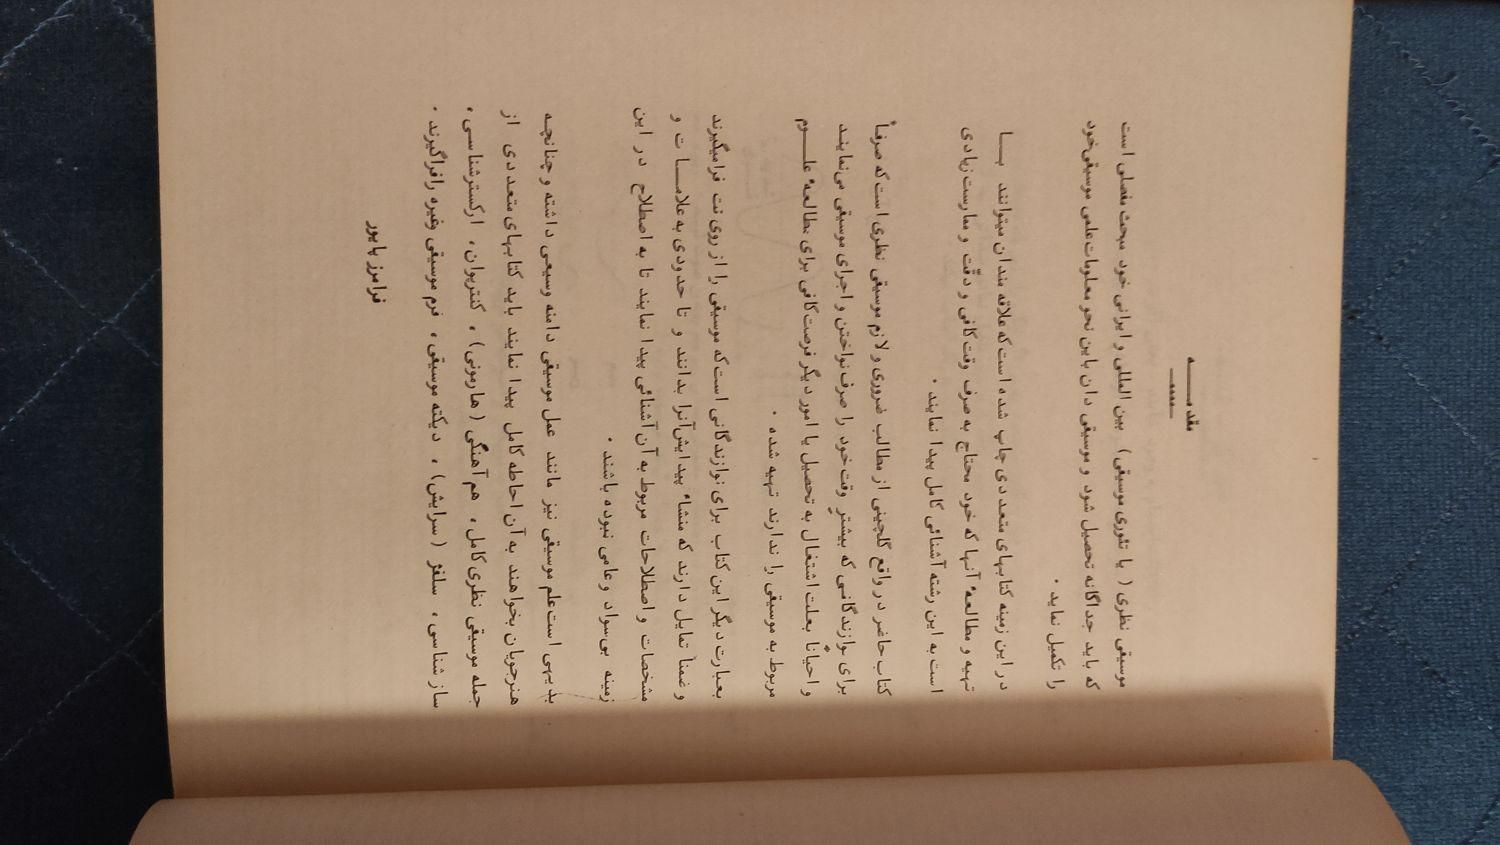 مقدمه
موسیقی نظری ( یا تئوری موسیقی) بین المللی و ایرانی خود مبحث مفصلی است
که باید جداگانه تحصیل شود و موسیقی دان باین نحو معلومات علمی موسیقی خود
را تکمیل نماید .
در این زمینه کتابهای متعددی چاپ شده است که علاقه مندان میتوانند با
تهیه و مطالعهٔ آنها که خود محتاج به صرف وقت کافی و دقّت و ممارست زیادی
است به این رشته آشنائی کامل پیدا نمایند .
کتاب حاضر در واقع گلچینی از مطالب ضروری و لازم موسیقی نظری است که صرفاً
برای نوازندگانی که بیشتر وقت خود را صرف نواختن و اجرای موسیقی می‌نمایند
و احیانا بعلت اشتغال به تحصیل یا امور دیگر فرصت کافی برای مطالعهٔ علوم
مربوط به موسیقی را ندارند تهیه شده .
بعبارت دیگر این کتاب برای نوازندگانی است که موسیقی را از روی نت فرامیگیرند
و ضمناً تمایل دارند که منشاء پیدایش آنرا بدانند و تا حدودی به علامات و
مشخصات و اصطلاحات مربوط به آن آشنائی پیدا نمایند تا به اصطلاح در این
زمینه بی‌سواد و عامی نبوده باشند .
بدیهی است علم موسیقی نیز مانند عمل موسیقی دامنه وسیعی داشته و چنانچه
هنرجویان بخواهند به آن احاطه کامل پیدا نمایند باید کتابهای متعددی از
جمله موسیقی نظری کامل، هم آهنگی ( هارمونی) ، کنترپوان، ارکسترشناسی،
ساز شناسی، سلفژ ( سرایش) ، دیکته موسیقی، فرم موسیقی وغیره رافراگیرند .
فرامرز پایور